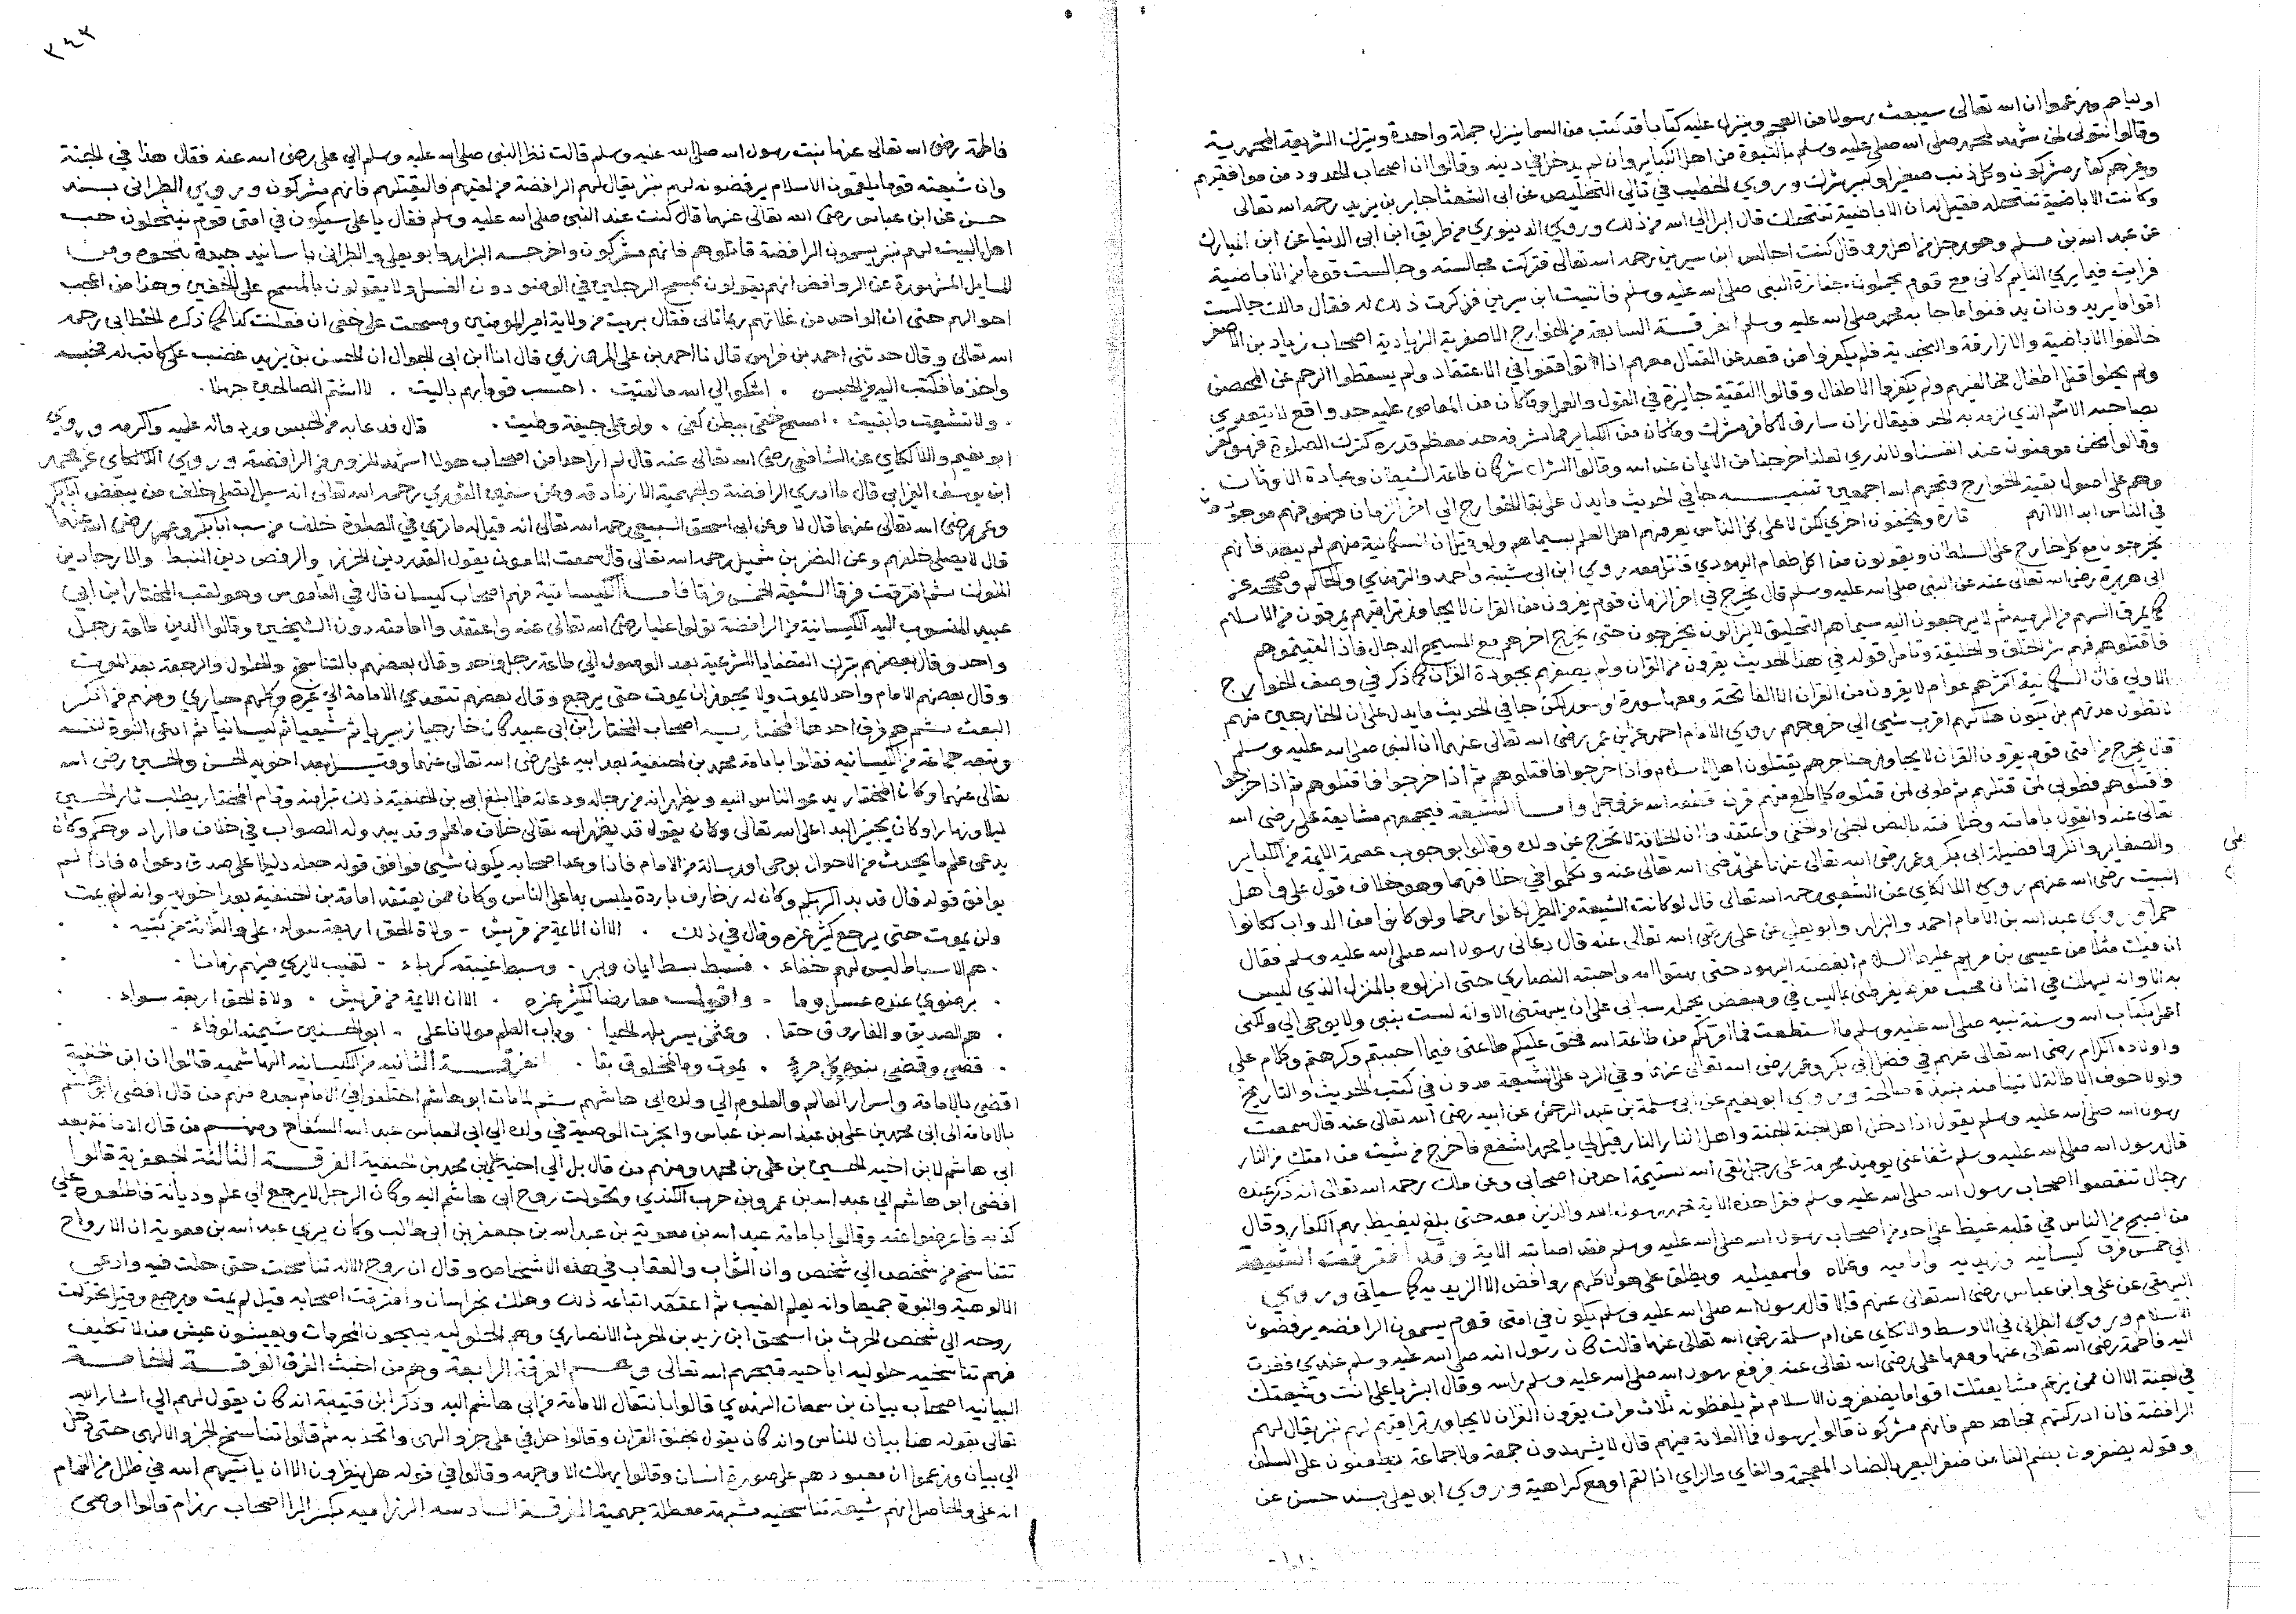 اولياهم وزعموا ان الله تعالى سيبعث رسولا من العجم وينزل عليه كتابا قد كتب من السما ينزل جملة واحدة ويترك الشريعة المحمدية
وقالوا نتولى لمن شهد لمحمد صلى الله عليه وسلم بالنبوة من اهل الكتاب وان لم يدخل في دينه وقالوا ان اصحاب الحدود من موافقيهم
وغيرهم كفار مشركون وكل ذنب صغير او كبير شرك وروي الخطيب في تالي التلخيص عن ابي الشعثا جابر بن يزيد رحمه الله تعالى
وكانت الاباضية تنتحله فقيل له ان الاباضية تنتحلك قال ابرا الى الله من ذلك وروي الدينوري من طريق ابن ابي الدنيا عن ابن المبارك
عن عبد الله بن مسلم وهو رجل من اهل مرو قال كنت اجالس ابن سيرين رحمه الله تعالى فتركت مجالسته وجالست قوما من الاباضية
فرايت فيما يرى النايم كاني مع قوم يحملون جنازة النبي صلى الله عليه وسلم فاتيت ابن سيرين فذكرت ذلك له فقال مالك جالست
اقواما يريدون ان يدفنوا ما جا به محمد صلى الله عليه وسلم الفرقة السابعة من الخوارج الاصفرية الزيادية اصحاب زياد بن الاصفر
خالفوا الاباضية والازارقة والنجدية فلم يكفروا من قعد عن القتال معهم اذا توافقوا في الاعتقاد ولم يسقطوا الرجم عن المحصن
ولم يحلوا قتل اطفال مخالفيهم ولم يكفروا الاطفال وقالوا التقية جايزة في القول والعمل وما كان من المعاصي عليه حد واقع لا يتعدى
بصاحبه الاسم الذي لزمه به الحد فيقال زان سارق لا كافر مشرك وما كان من الكباير مما ليس فيه حد معظم قدره كترك الصلوة فهو كفر
وقالوا نحن مومنون عند انفسنا ولا ندري لعلنا خرجنا من الايمان عند الله وقالوا الشرك شركان طاعة الشيطان وعبادة الاوثان
وهم على اصول بقية الخوارج قبحهم الله اجمعين تنبيه جا في الحديث ما يدل على بقا الخوارج الى اخر الزمان فهم موجودون
في الناس ابدا الا انهم تارة ويختفون اخرى لكن لا على كل الناس يعرفهم اهل العلم بسيماهم
يخرجون مع كل خارج على السلطان ويقولون من اكل طعام اليهودي قتل معه روي ابن ابي شيبة واحمد والحاكم وصححه عن
ابي هريرة رضي الله تعالى عنه عن النبي صلى الله عليه وسلم قال يخرج في اخر الزمان قوم يقرون من القران لا يجاوز تراقيهم يمرقون من الاسلام
كما يمرق السهم من الرمية ثم لا يرجعون اليه سيماهم التحليق لا يزالون يخرجون حتى يخرج اخرهم مع المسيح الدجال فاذا لقيتموهم
فاقتلوهم فهم شر الخلق والخليقة وتامل قوله في هذا الحديث يقرون من القران ولم يصفهم بجودة القران كما ذكر في وصف الخوارج
الاولى فان اكثرهم عوام لا يقرون من القران الا الفاتحة ومعها سورة او سور لكن جا في الحديث ما يدل على ان الخارجين منهم
لا تطول مدتهم بل يكون هلاكهم اقرب شي الى خروجهم روي الامام احمد عن ابن عمر رضي الله تعالى عنهما ان النبي صلى الله عليه وسلم
قال يخرج من امتي قوم يقرون القران لا يجاوز حناجرهم يقتلون اهل الاسلام فاذا خرجوا فاقتلوهم ثم اذا خرجوا فاقتلوهم ثم اذا خرجوا
فاقتلوهم فطوبى لمن قتلهم ثم طوبى لمن قتلوه كلما طلع منهم قرن قطعه الله عز وجل واما الشيعة فيجمعهم مشايعة على رضي الله
تعالى عنه والقول بامامته وخلافته بالنص اجلي او الخفي واعتقدوا ان الخلافة لا تخرج عن ولده وقالوا بوجوب عصمة الايمة من الكباير
والصغاير وانكروا فضيلة ابي بكر وعمر رضي الله تعالى عنهما على علي رضي الله تعالى عنه وتكلموا في خلافتهما وهو خلاف قول علي واهل
البيت رضي الله عنهم روي اللالكاي عن الشعبي رحمه الله تعالى قال لو كانت الشيعة من الطير لكانوا رخما ولو كانوا من الدواب لكانوا
حمرا وروي عبد الله بن الامام احمد والبزار وابو يعلى عن علي رضي الله تعالى عنه قال دعاني رسول الله صلى الله عليه وسلم فقال
ان فيك مثلا من عيسى بن مريم عليهما السلام ابغضته اليهود حتى بهتوا امه واحبته النصاري حتى انزلوه بالمنزل الذي ليس
به الا وانه ليهلك في اثنان محب مفرط يفرطني بما ليس في ومبغض يحمله شناني على ان يبهتني الا وانه لست بنبي ولا يوحى الي ولكني
اعمل بكتاب الله وسنة نبيه صلى الله عليه وسلم ما استطعت فما امرتكم من طاعة الله فحق عليكم طاعتي فيما احببتم وكرهتم وكلام علي
واولاده الكرام رضي الله تعالى عنهم في فضل ابي بكر وعمر رضي الله تعالى عنهما وفي الرد على الشيعة مدون في كتب الحديث والتاريخ
ولولا خوف الاطالة لاتينا منه بنبذة صالحة وروي ابو نعيم عن ابي سلمة بن عبد الرحمن عن ابيه رضي الله تعالى عنه قال سمعت
رسول الله صلى الله عليه وسلم يقول اذا دخل اهل الجنة الجنة واهل النار النار قيل لي يا محمد اشفع فاخرج من شيت من امتك من النار
قال رسول الله صلى الله عليه وسلم شفاعتي يوميذ محرمة على رجل لقي الله بشتيمة احد من اصحابي وعن ملك رحمه الله تعالى انه ذكر عنده
رجال تنقصوا اصحاب رسول الله صلى الله عليه وسلم فقرا هذه الاية محمد رسول الله والذين معه حتى بلغ ليغيظ بهم الكفار وقال
من اصبح من الناس في قلبه غيظ على احد من اصحاب رسول الله صلى الله عليه وسلم فقد اصابته الاية وقد افترقت الشيعة
الى خمس فرق كيسانيه وزيديه واماميه وغلاه واسمعيليه ويطلق على هولا كلهم روافض الا الزيديه كما سياتي وروي
البيهقي عن علي وابن عباس رضي الله تعالى عنهم قالا قال رسول الله صلى الله عليه وسلم يكون في امتي قوم يسمون الرافضه يرفضون
الاسلام وروي الطبراني في الاوسط واللالكاي عن ام سلمة رضي الله تعالى عنها قالت كان رسول الله صلى الله عليه وسلم عندي فغدت
اليه فاطمة رضي الله تعالى عنها ومعها علي رضي الله تعالى عنه فرفع رسول الله صلى الله عليه وسلم راسه وقال ابشر يا علي انت وشيعتك
في الجنة الا ان ممن يزعم مشايعتك اقواما يضفزون الاسلام ثم يلفظونه ثلاث مرات يقرون القران لا يجاوز تراقيهم لهم نبز يقال لهم
الرافضة فان ادركتهم فجاهدهم فانهم مشركون قالوا يرسول الله فما العلامة فيهم قال لا يشهدون جمعة ولا جماعة يطعنون على السلف
وقوله يضفزون بضم الفا من ضفز البعير بالضاد المعجمة والفاي والزاي اذا لقم او مع كراهية وروي ابو يعلى بسند حسن عن
٣٤٢
فاطمة رضي الله تعالى عنها بنت رسول الله صلى الله عليه وسلم قالت نظر النبي صلى الله عليه وسلم الى علي رضي الله عنه فقال هذا في الجنة
وان شيعته قوما يلفظون الاسلام يرفضونه لهم نبز يقال لهم الرافضة من لقيهم فاليقتلهم فانهم مشركون وروي الطبراني بسند
حسن عن ابن عباس رضي الله تعالى عنهما قال كنت عند النبي صلى الله عليه وسلم فقال يا علي سيكون في امتي قوم ينتحلون حب
اهل البيت لهم نبز يسمون الرافضة قاتلوهم فانهم مشركون واخرجه البزار وابو يعلى والطبراني باسانيد جيدة نحوه ومن
المسايل المشهورة عن الروافض انهم يقولون بمسح الرجلين في الوضو دون الغسل ولا يقولون بالمسح على الخفين وهذا من اعجب
احوالهم حتى ان الواحد من غلاتهم ربما تالى فقال بريت من ولاية امير المومنين ومسحت على خفي ان فعلت كذا كما ذكره الخطابي رحمه
الله تعالى وقال حدثني احمد بن فراس قال نا احمد بن علي المروزي قال انا ابن ابي الجوال ان الحسن بن يزيد غضب على كاتب له فحبسه
واخذ ما فكتب اليه من الحبس . اشكو الى الله ما لقيت . احببت قوما بهم بليت . لا اشتم الصالحين جهرا .
. ولا تشيعت ما بقيت . امسح خفي ببطن كفي . ولو على جيفة وطيت . قال فدعا به من الحبس ورد ماله عليه واكرمه وروي
ابو نعيم واللالكاي عن الشافعي رضي الله تعالى عنه قال لم ار احدا من اصحاب هولا اشهد للزور من الرافضة وروي اللالكاي عن محمد
ابن يوسف الفريابي قال ما ادري الرافضة والجهمية الا زنادقه وعن سفين الثوري رحمه الله تعالى انه سيل انصلي خلف من يبغض ابا بكر
وعمر رضي الله تعالى عنهما قال لا وعن ابي اسحق السبيعي رحمه الله تعالى انه قيل له ما ترى في الصلوة خلف من سب ابا بكر وعمر رضي الله عنهما
قال لا يصلى خلفهم وعن النضر بن شميل رحمه الله تعالى قال سمعت المامون يقول القدر دين الخزر والرفض دين النبط والارجا دين
الملوك ثم افترقت فرق الشيعة الخمس فرقا فاما الكيسانية فهم اصحاب كيسان قال في القاموس وهو لقب المختار ابن ابي
عبيد المنسوب اليه الكيسانية من الرافضة تولوا عليا رضي الله تعالى عنه واعتقدوا امامته دون الشيخين وقالوا الدين طاعة رجل
واحد وقال بعضهم بترك القضايا الشرعية بعد الوصول الى طاعة رجل واحد وقال بعضهم بالتناسخ والحلول والرجعة بعد الموت
وقال بعضهم الامام واحد لا يموت ولا يجوز ان يموت حتى يرجع وقال بعضهم تتعدى الامامة الى غيره وكلهم حيارى ومنهم من انكر
البعث ثم هم فرق احدها المختاريه اصحاب المختار ابن ابي عبيد كان خارجيا زبيريا ثم شيعيا ثم كيسانيا ثم ادعى النبوة لنفسه
وتبعه جماعة من الكيسانيه فقالوا بامامة محمد بن الحنفية بعد ابيه علي رضي الله تعالى عنهما وقيل بعد اخويه الحسن والحسين رضي الله
تعالى عنهما وكان المختار يدعو الناس اليه ويظهر انه من رجاله ودعاته فلما بلغ ابن الحنفية ذلك تبرا منه وقام المختار يطلب ثار الحسين
ليلا ونهارا وكان يجيز البدا على الله تعالى وكان يقول قد يظهر لله تعالى خلاف ما علم وقد يبدو له الصواب في خلاف ما اراد وحكم وكان
يدعي علم ما يحدث من الاحوال بوحي او رسالة من الامام فاذا وعد اصحابه بكون شيي فوافق قوله جعله دليلا على صدق دعواه فاذا لم
يوافق قوله قال قد بدا لربكم وكان له زخارف باردة يلبس بها على الناس وكان ممن يعتقد امامة بن الحنفية بعد اخويه وانه لم يمت
ولن يموت حتى يرجع كثير عزه وقال في ذلك . الا ان الايمة من قريش . ولاة الحق اربعة سواء . علي والثلاثة من بنيه .
. هم الاسباط ليس لهم خفاء . فسبط سبط ايمان وبر . وسبط غيبته كربلاء . تغيب لا يرى فيهم زمانا .
. برضوى عنده عسل وما . واقول معارضا لكثير عزه . الا ان الايمة من قريش . ولاة الحق اربعة سواء .
. هم الصديق والفاروق حقا . وعثمن الحيا . وباب العلم مولانا علي . ابو الحسنين شيمته الوفاء .
. قضى وقضى بنوه كل . يموت وما لمخلوق بقا . الفرقة الثانيه من الكيسانيه الهاشميه قالوا ان ابن الحنفية
افضى بالامامة واسرار العالم والعلوم الى ولده ابي هاشم ثم لما مات ابو هاشم اختلفوا في الامام بعده فمنهم من قال افضى ابو هاشم
بالامامة الى محمد بن علي بن عبد الله بن عباس وانجرت الوصية في ولده الى ابي العباس عبد الله السفاح ومنهم من قال الامامة بعد
ابي هاشم لابن اخيه الحسن بن علي بن محمد ومنهم من قال بل الى اخيه علي بن محمد بن الحنفية الفرقة الثالثة قالوا
افضى ابو هاشم الى عبد الله بن عمرو بن حرب الكندي وتحولت روح ابي هاشم اليه وكان الرجل لا يرجع الى علم وديانة فاطلعوا على
كذبه فاعرضوا عنه وقالوا بامامة عبد الله بن معوية بن عبد الله بن جعفر بن ابي طالب وكان يرى عبد الله بن معوية ان الارواح
تتناسخ من شخص الى شخص وان الثواب والعقاب في هذه الاشخاص وقال ان روح الاله تناسخت حتى حلت فيه وادعى
الالوهية والنبوة جميعا وانه يعلم الغيب ثم اعتقد اتباعه ذلك وهلك بخراسان وافترقت اصحابه قيل لم يمت ويرجع وقيل تحولت
روحه الى شخص الحرث بن اسحق ابن زيد بن الحرث الانصاري وهم الحلوليه يبيحون المحرمات ويعيشون عيش من لا تكليف
فهم تناسخيه حلوليه اباحيه قبحهم الله تعالى وهم الفرقة الرابعة وهم من اخبث الفرق الفرقة الخامسة
البيانيه اصحاب بيان بن سمعان النهدي قالوا بانتقال الامامة من ابي هاشم اليه وذكر ابن قتيبة انه كان يقول لهم الى اشار الله
تعالى بقوله هذا بيان للناس وانه كان يقول بخلق القران وقالوا حل في علي جزو الهي واتحد به ثم قالوا تناسخ الجزو الالهي حتى وصل
الى بيان وزعموا ان معبودهم على صورة انسان وقالوا يهلك الا وجهه وقالوا في قوله هل ينظرون الا ان ياتيهم الله في ظلل من الغمام
انه علي والحاصل انهم شيعة تناسخيه مشبهة معطلة جهمية الفرقة السادسه الرزاميه بكسر الرا اصحاب رزام قالوا اوصى